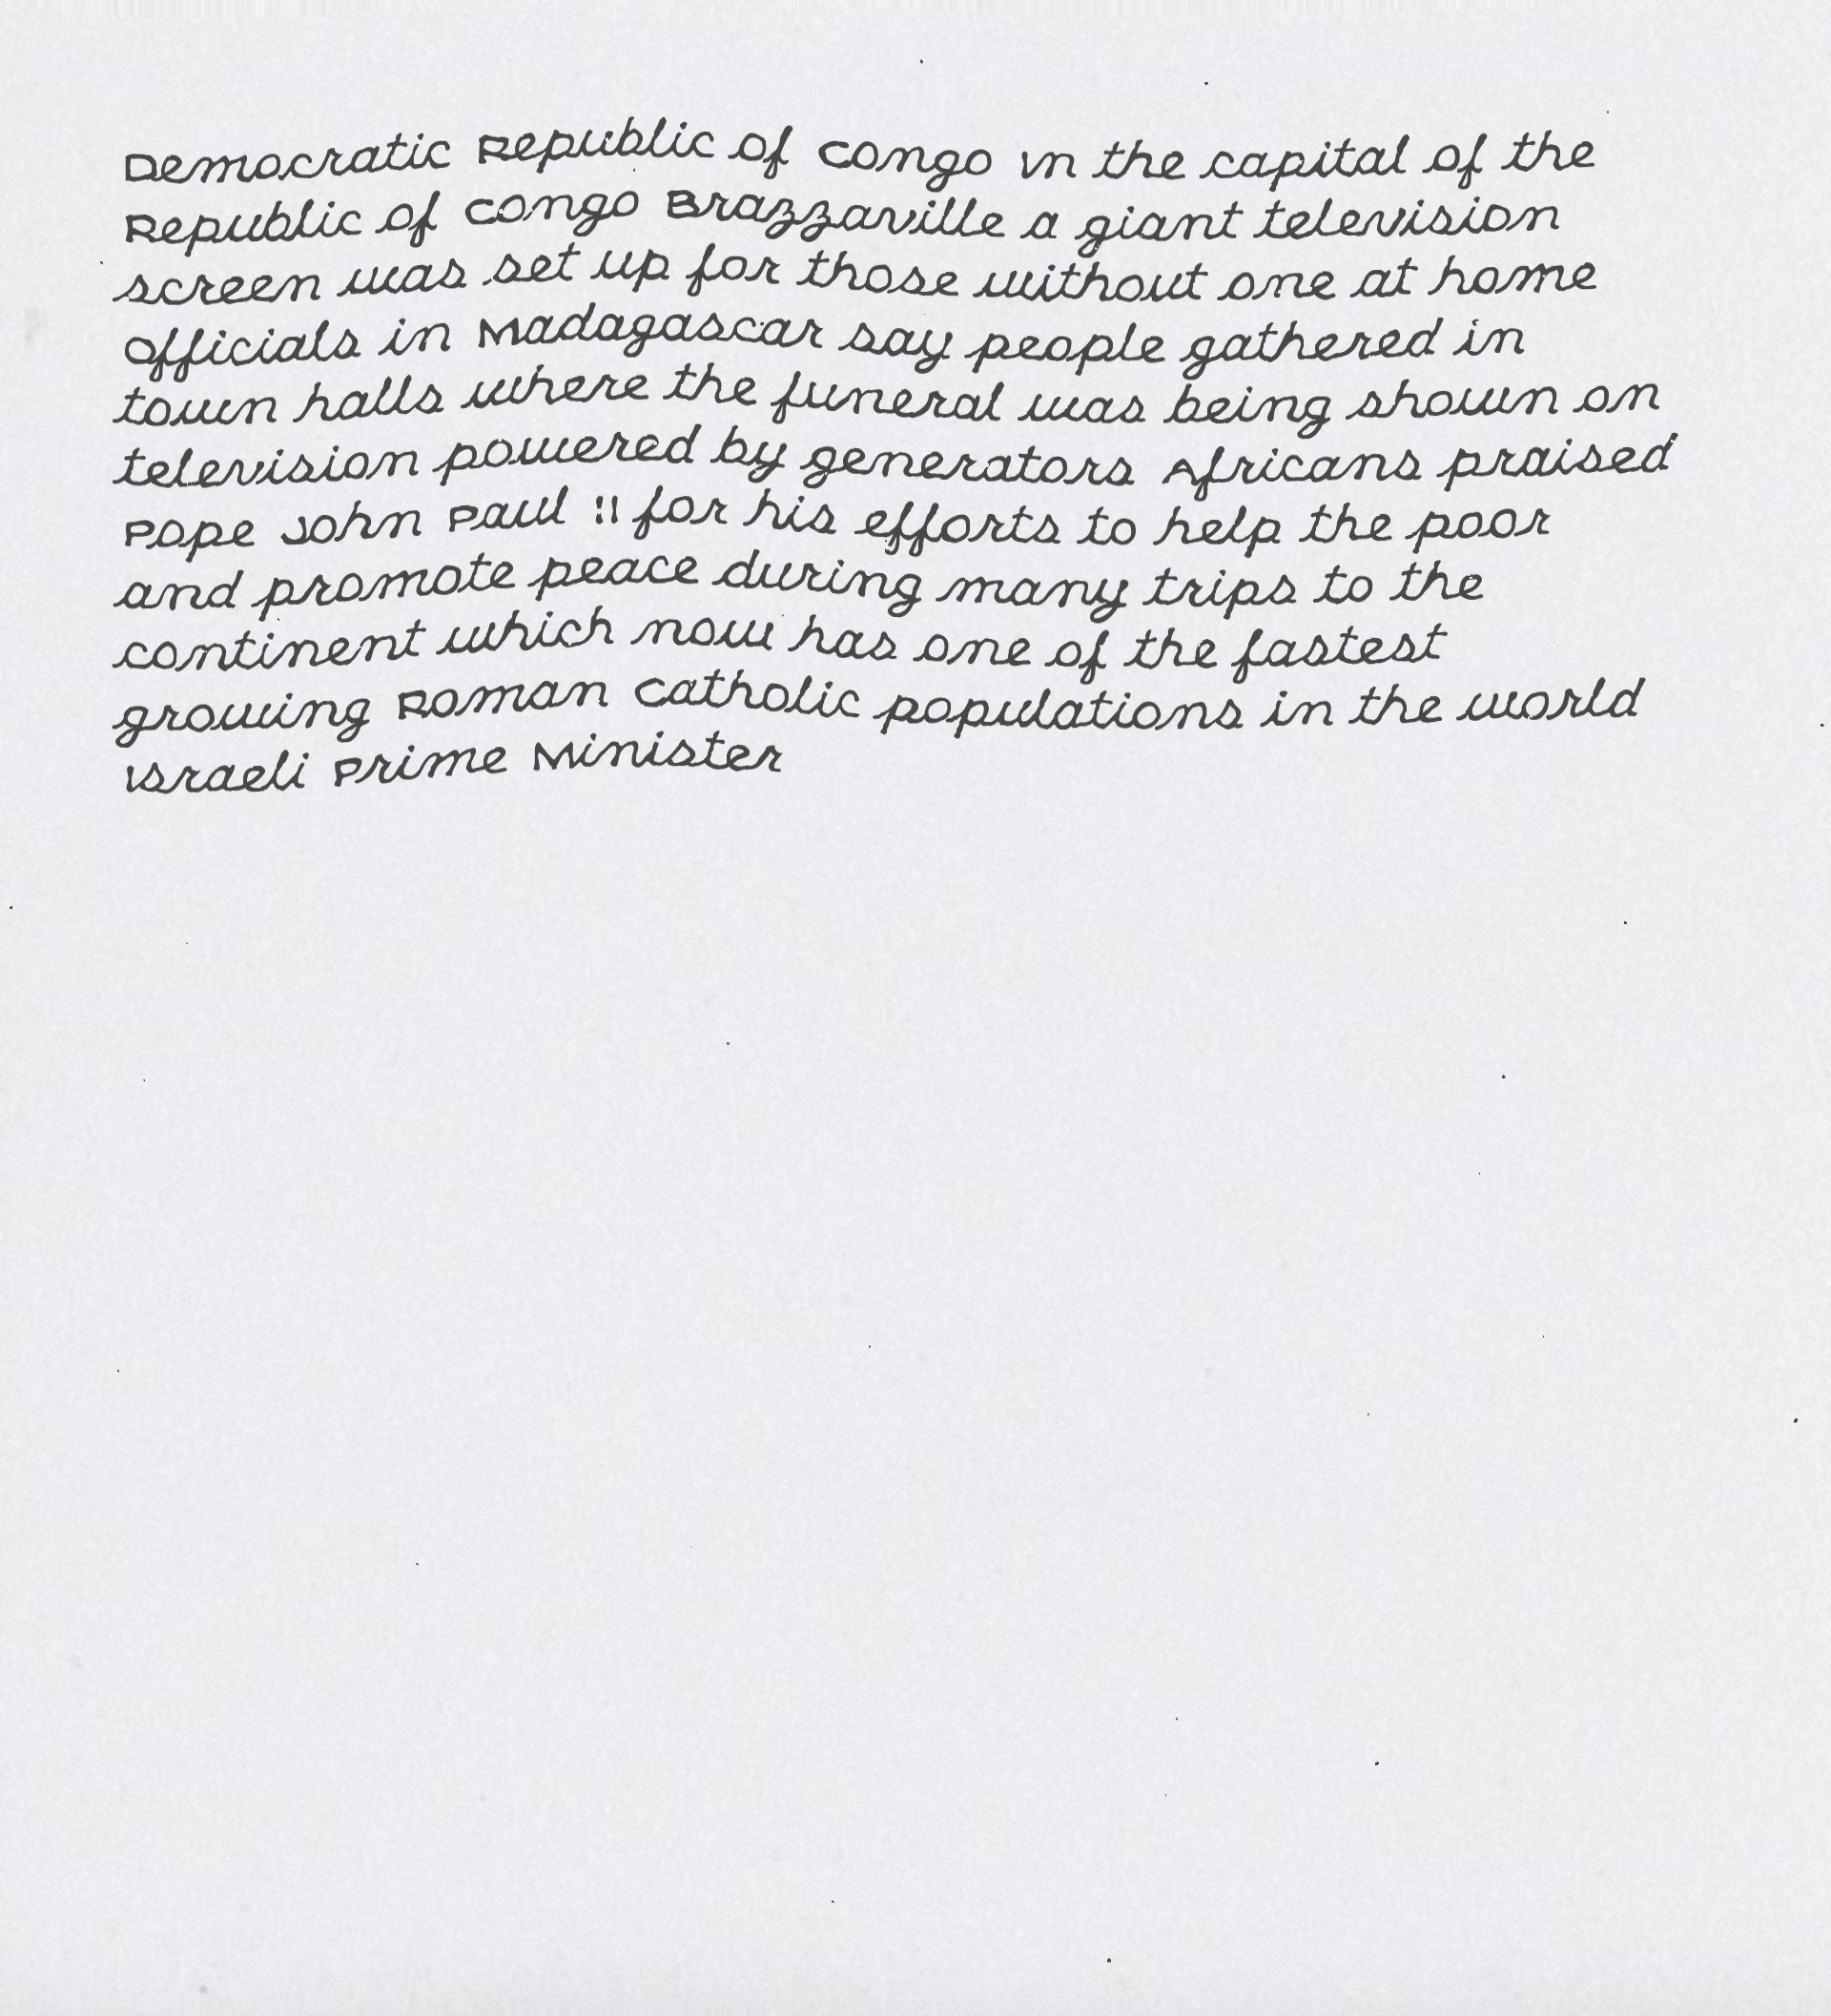 Democratic Republic of Congo In the capital of the
Republic of Congo Brazzaville a giant television
screen was set up for those without one at home
Officials in Madagascar say people gathered in
town halls where the funeral was being shown on
television powered by generators Africans praised
Pope John Paul II for his efforts to help the poor
and promote peace during many trips to the
continent which now has one of the fastest
growing Roman Catholic populations in the world
Israeli Prime Minister